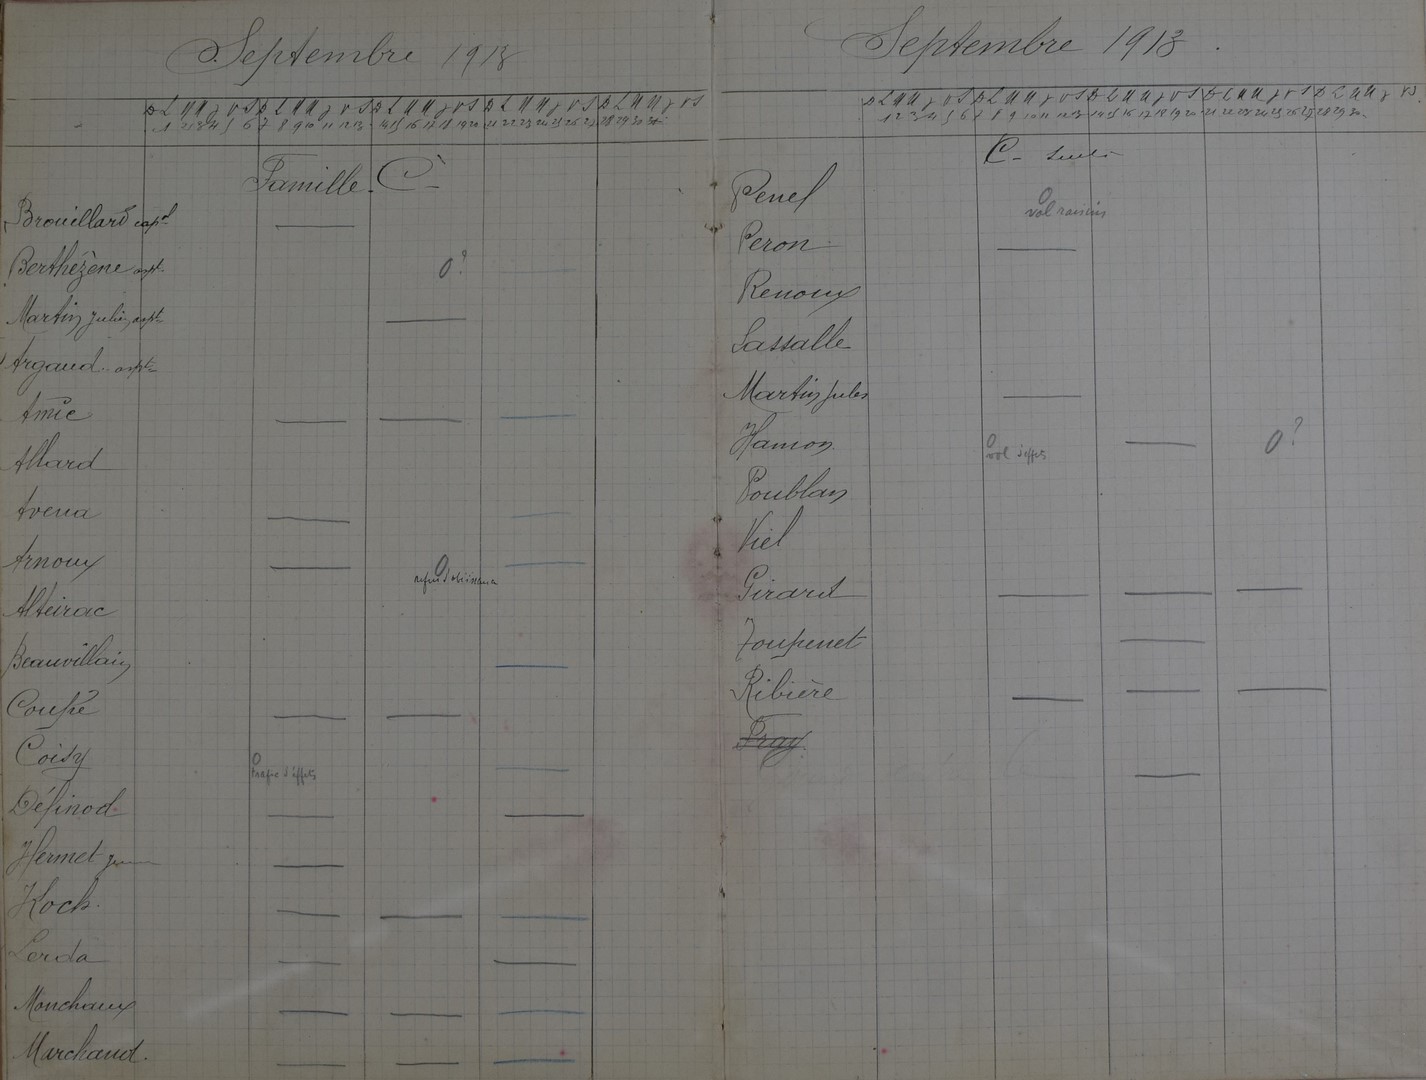 Septembre 1913
D L M M J V S D L M M J V S D L M M J V S D L M M J V S D L M M J V S
1 2 3 4 5 6 7 8 9 10 11 12 13 14 15 16 17 18 19 20 21 22 23 24 25 26 27 28 29 30
Famille C
Brouillard capl
Berthézène aspt 0?
Martin Julien aspt
Argaud aspt
Amic
Allard
Avena
Arnoux 0
refus d'obéissance
Alteirac
Beauvillain
Coupé
Coisy 0
trafic d'effets
Définod
Hermet
Koch
Lerda
Monchaux
Marchand.
Septembre 1913.
D L M M J V S D L M M J V S D L M M J V S D L M M J V S D L M M J V S
1 2 3 4 5 6 7 8 9 10 11 12 13 14 15 16 17 18 19 20 21 22 23 24 25 26 27 28 29 30
C - suite
Penel 0
vol raisins
Peron
Renoux
Lassalle
Martin Jules
Hamon 0 0?
vol d'effets
Poublan
Viel
Girard
Toupenet
Ribière
Fray